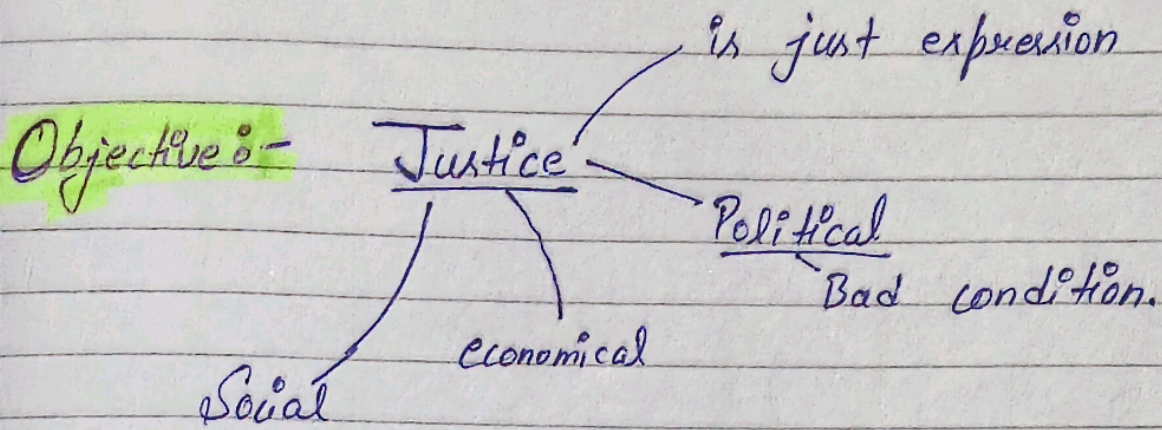 is just expression
Objective :- Justice
Political
Bad condition.
economical
Social